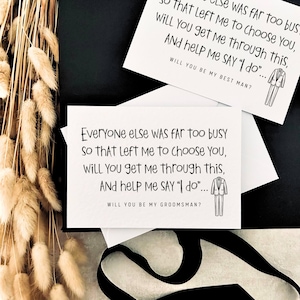 ELSE WAS FAR TOO BUSY
SO THAT LEFT ME TO CHOOSE YOU,
WILL YOU GET ME THROUGH THIS,
AND HELP ME SAY "I DO"...
WILL YOU BE MY BEST MAN?
EVERYONE ELSE WAS FAR TOO BUSY
SO THAT LEFT ME TO CHOOSE YOU,
WILL YOU GET ME THROUGH THIS,
AND HELP ME SAY "I DO"...
WILL YOU BE MY GROOMSMAN?